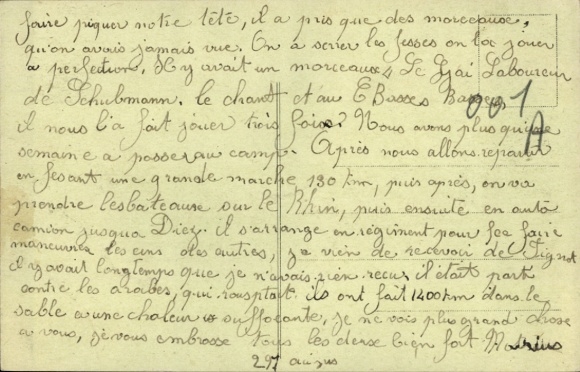 faire piquer notre tété, il a pris que des morceaux,
qu'on avais jamais vue. On a serier les fesses on la jouer
a perfection. Il y avait un morceaux, Le Gai Laboureur
de Schubmann. le chant et au E Basses
il nous l'a fait jouer trois fois. Nous avons plus qu'une
semaine a passer au camp. Après nous allons repartir
en fesant une grande marche 130 km, puis après, on va
prendre les bateaux sur le Rhin, puis ensuite en auto
camion jusqua Diez. il s'arrange en régiment pour fee faire
maneuvrer les uns des autres, je vien de recevoir de
il y avait longtemps que je n'avais rien recu, il était parti
contre les arabes, qui rousptait. ils ont fait 1400 km dans le
sable a une chaleur suffocante, je ne vois plus grand chose
a vous, je vous embrasse tous les deux bien fort Marius
297 au jus
001
A